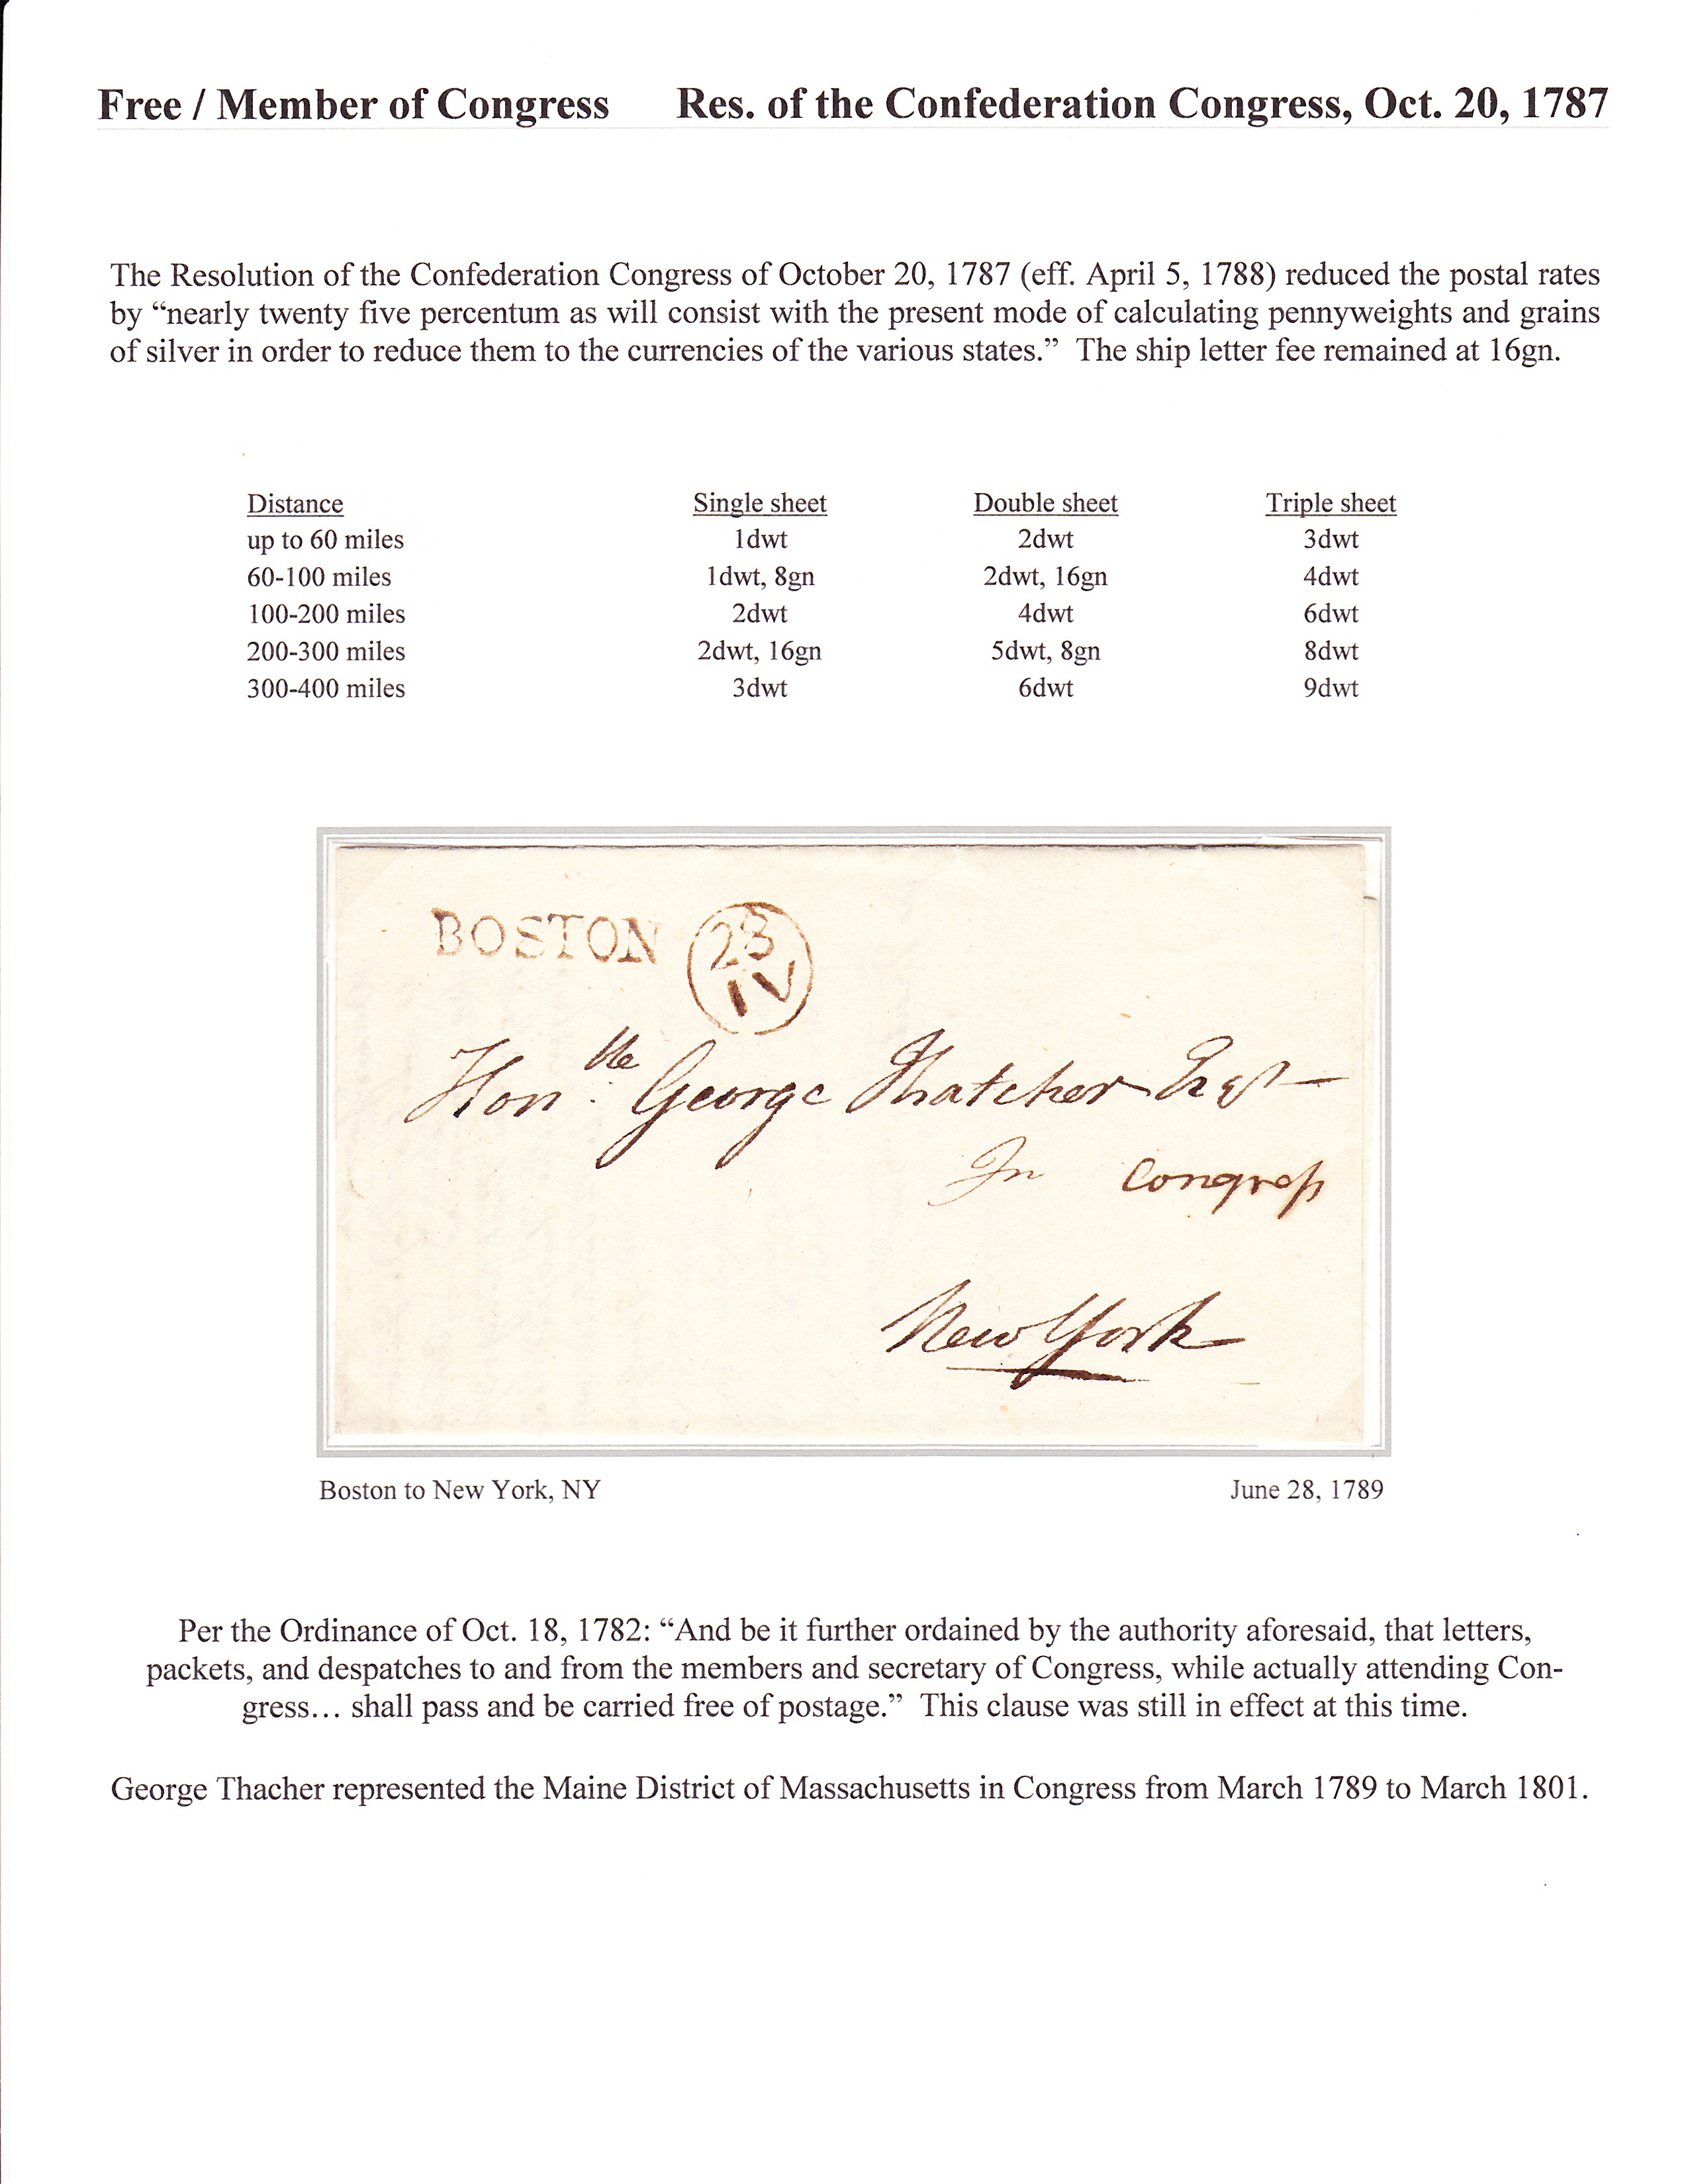 Free / Member of Congress Res. of the Confederation Congress, Oct. 20, 1787
The Resolution of the Confederation Congress of October 20, 1787 (eff. April 5, 1788) reduced the postal rates
by “nearly twenty five percentum as will consist with the present mode of calculating pennyweights and grains
of silver in order to reduce them to the currencies of the various states.” The ship letter fee remained at 16gn.
Distance Single sheet Double sheet Triple sheet
up to 60 miles 1dwt 2dwt 3dwt
60-100 miles 1dwt, 8gn 2dwt, 16gn 4dwt
100-200 miles 2dwt 4dwt 6dwt
200-300 miles 2dwt, 16gn 5dwt, 8gn 8dwt
300-400 miles 3dwt 6dwt 9dwt
BOSTON 28
IV
Honble George Thatcher Esqr
In Congress
New York
Boston to New York, NY June 28, 1789
Per the Ordinance of Oct. 18, 1782: “And be it further ordained by the authority aforesaid, that letters,
packets, and despatches to and from the members and secretary of Congress, while actually attending Con-
gress… shall pass and be carried free of postage.” This clause was still in effect at this time.
George Thacher represented the Maine District of Massachusetts in Congress from March 1789 to March 1801.